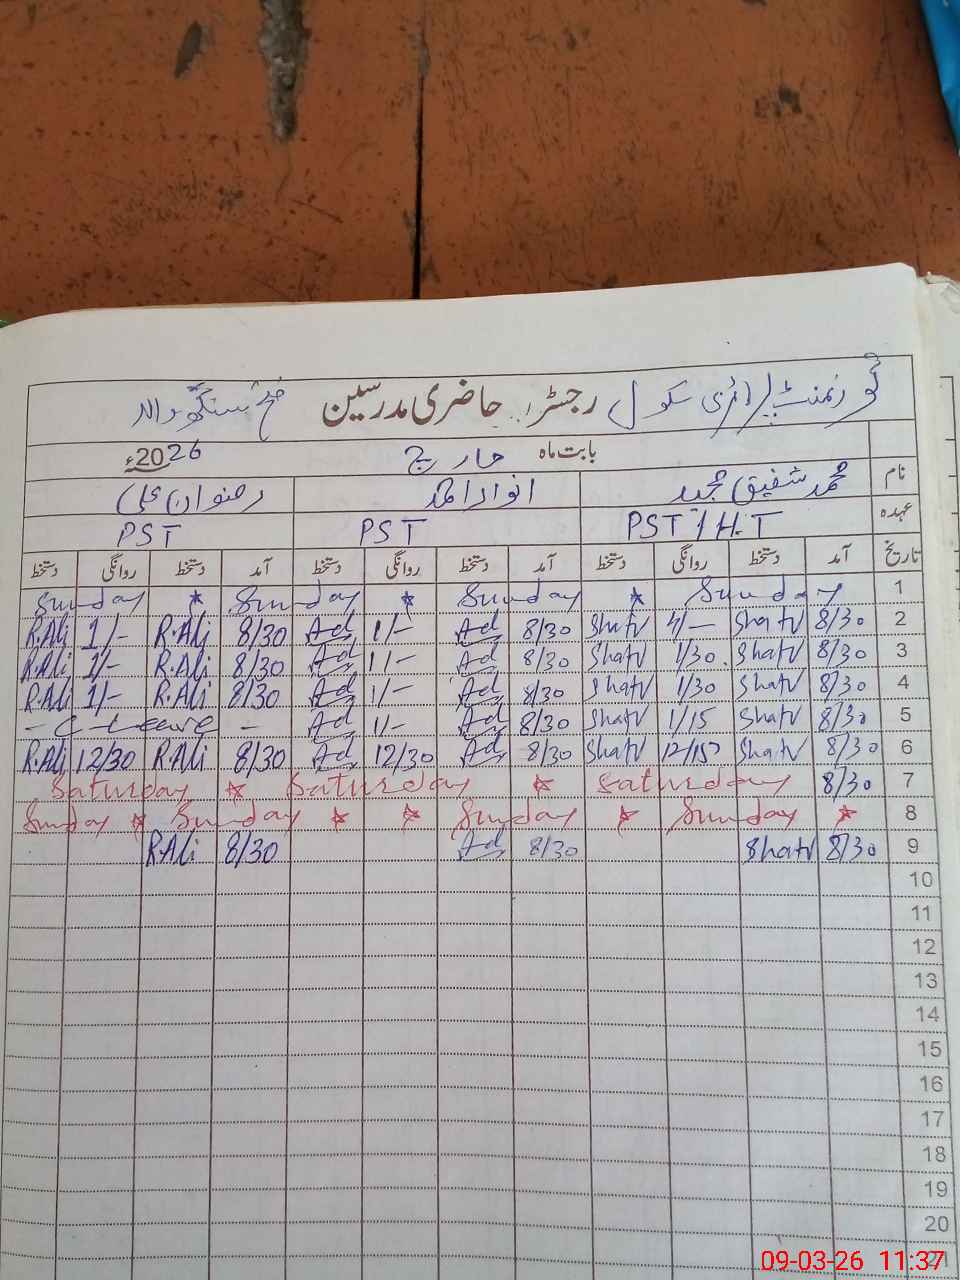 گورنمنٹ پرائمری سکول رجسٹر حاضری مدرسین فتح سنگھ والا
بابت ماہ مارچ 2026ء
نام محمد شفیق مجید انوار احمد رضوان علی
عہدہ PST / H.T PST PST
تاریخ آمد دستخط روانگی دستخط آمد دستخط روانگی دستخط آمد دستخط روانگی دستخط
1 Sunday * Sunday * Sunday * Sunday
2 8/30 Shafv 4/- Shafv 8/30 Ad 1/- Ad 8/30 R.Ali 1/- R.Ali
3 8/30 Shafv 1/30 Shafv 8/30 Ad 1/- Ad 8/30 R.Ali 1/- R.Ali
4 8/30 Shafv 1/30 Shafv 8/30 Ad 1/- Ad 8/30 R.Ali 1/- R.Ali
5 8/30 Shafv 1/15 Shafv 8/30 Ad 1/- Ad - C-Leave -
6 8/30 Shafv 12/15 Shafv 8/30 Ad 12/30 Ad 8/30 R.Ali 12/30 R.Ali
7 8/30 Saturday * Saturday * Saturday
8 * Sunday * Sunday * * Sunday * Sunday
9 8/30 Shafv 8/30 Ad 8/30 R.Ali
10
11
12
13
14
15
16
17
18
19
20
21
09-03-26 11:37